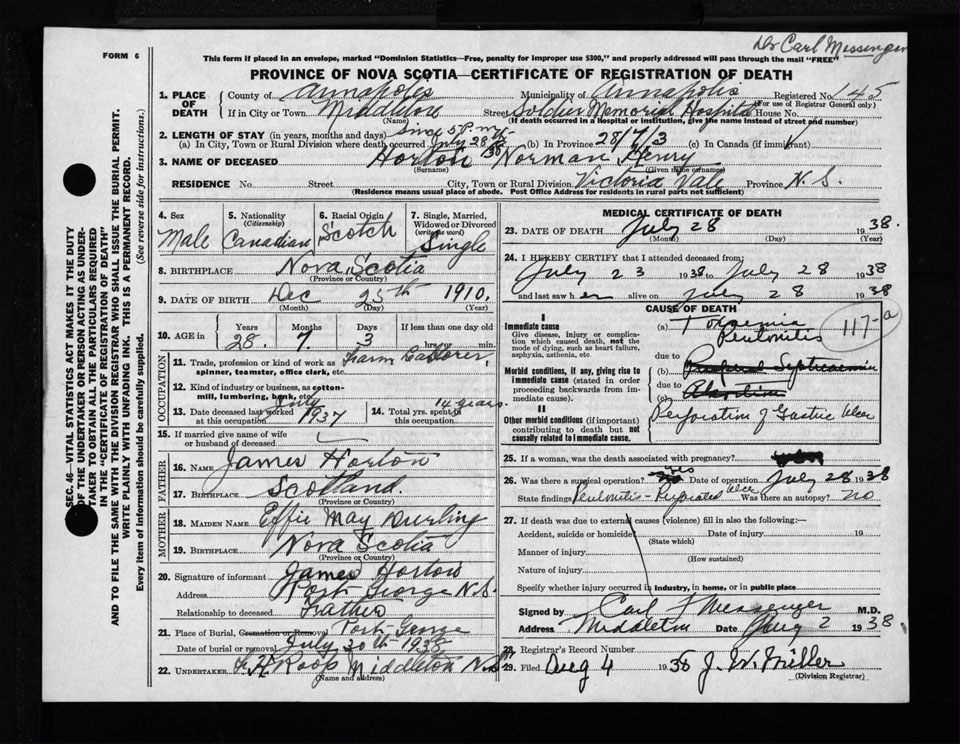 Dr Carl Messenger
FORM 6
This form if placed in an envelope, marked "Dominion Statistics—Free, penalty for improper use $300," and properly addressed will pass through the mail "FREE"
PROVINCE OF NOVA SCOTIA—CERTIFICATE OF REGISTRATION OF DEATH
1. PLACE OF DEATH County of Annapolis Municipality of Annapolis Registered No. 145
(For use of Registrar General only)
If in City or Town Middleton Street Soldier Memorial Hospital House No.
(Name) (If death occurred in a hospital or institution, give the name instead of street and number)
2. LENGTH OF STAY (in years, months and days) Since 5 P.M.
(a) In City, Town or Rural Division where death occurred July 28 38 (b) In Province 28/7/3 (c) In Canada (if immigrant)
3. NAME OF DECEASED Horton Norman Henry
(Surname) (Given name or names)
RESIDENCE No. Street City, Town or Rural Division Victoria Vale Province N.S.
(Residence means usual place of abode. Post Office Address for residents in rural parts not sufficient)
4. Sex Male
5. Nationality (Citizenship) Canadian
6. Racial Origin Scotch
7. Single, Married, Widowed or Divorced (write the word) Single
8. BIRTHPLACE Nova Scotia
(Province or Country)
9. DATE OF BIRTH Dec 25th 1910.
(Month) (Day) (Year)
10. AGE in Years 28. Months 7. Days 3 If less than one day old
hrs or min.
OCCUPATION
11. Trade, profession or kind of work as Farm Laborer,
spinner, teamster, office clerk, etc.
12. Kind of industry or business, as cotton-
mill, lumbering, bank, etc.
13. Date deceased last worked at this occupation 1937
14. Total yrs. spent in this occupation 14 years.
15. If married give name of wife
or husband of deceased
FATHER
16. NAME James Horton
17. BIRTHPLACE Scotland
(Province or Country)
MOTHER
18. MAIDEN NAME Effie May Durling
19. BIRTHPLACE Nova Scotia
(Province or Country)
20. Signature of informant James Horton
Address Port George N.S.
Relationship to deceased Father
21. Place of Burial, Cremation or Removal Port George
Date of burial or removal July 30th 1938
22. UNDERTAKER Roop Middleton N.S.
(Name and address)
MEDICAL CERTIFICATE OF DEATH
23. DATE OF DEATH July 28 1938.
(Month) (Day) (Year)
24. I HEREBY CERTIFY that I attended deceased from:
July 23 1938 to July 28 1938
and last saw h alive on July 28 1938
CAUSE OF DEATH
117-a
I
Immediate cause
Give disease, injury or complication which caused death, not the mode of dying, such as heart failure, asphyxia, asthenia, etc.
(a) Toxaemia
Peritonitis
due to
Morbid conditions, if any, giving rise to immediate cause (stated in order proceeding backwards from immediate cause).
(b) Septicaemia
due to
(c) Abortion
II
Other morbid conditions (if important) contributing to death but not causally related to immediate cause.
Perforation of Gastric Ulcer
25. If a woman, was the death associated with pregnancy?
26. Was there a surgical operation? Yes Date of operation July 28 1938
State findings Peritonitis - Perforated Ulcer Was there an autopsy? no
27. If death was due to external causes (violence) fill in also the following:—
Accident, suicide or homicide Date of injury 19
(State which)
Manner of injury
(How sustained)
Nature of injury
Specify whether injury occurred in industry, in home, or in public place
Signed by Carl F Messenger M.D.
Address Middleton Date Aug 2 1938.
28. Registrar's Record Number
29. Filed Aug 4 1938 J. W. Miller
(Division Registrar)
SEC. 46—VITAL STATISTICS ACT MAKES IT THE DUTY
OF THE UNDERTAKER OR PERSON ACTING AS UNDER-
TAKER TO OBTAIN ALL THE PARTICULARS REQUIRED
IN THE "CERTIFICATE OF REGISTRATION OF DEATH"
AND TO FILE THE SAME WITH THE DIVISION REGISTRAR WHO SHALL ISSUE THE BURIAL PERMIT.
WRITE PLAINLY WITH UNFADING INK. THIS IS A PERMANENT RECORD.
Every item of information should be carefully supplied. (See reverse side for instructions.)